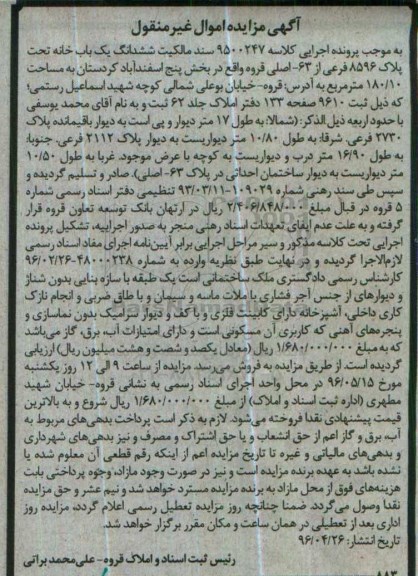 آگهی مزایده اموال غیر منقول
به موجب پرونده اجرایی کلاسه ۹۵۰۰۲۴۷ سند مالکیت ششدانگ یک باب خانه تحت
پلاک ۸۵۹۶ فرعی از ۶۳- اصلی قروه واقع در بخش پنج اسفندآباد کردستان به مساحت
۱۸۰/۱۰ مترمربع به آدرس: قروه-خیابان بوعلی شمالی کوچه شهید اسماعیل رستمی؛
که ذیل ثبت ۹۶۱۰ صفحه ۱۳۳ دفتر املاک جلد ۶۲ ثبت و به نام آقای محمد یوسفی
با حدود اربعه ذیل الذکر: (شمالا: به طول ۱۷ متر دیوار و پی است به دیوار باقیمانده پلاک
۲۷۳۰ فرعی. شرقا: به طول ۱۰/۸۰ متر دیواریست به دیوار پلاک ۲۱۱۲ فرعی. جنوبا:
به طول ۱۶/۹۰ متر درب و دیواریست به کوچه با عرض موجود. غربا به طول ۱۰/۵۰
متر دیواریست به دیوار ساختمان احداثی در پلاک ۶۳-اصلی). صادر و تسلیم گردیده و
سپس طی سند رهنی شماره ۱۰۹۰۲۹-۹۳/۰۳/۱۱ تنظیمی دفتر اسناد رسمی شماره
۵ قروه در قبال مبلغ ریال در ارتهان بانک توسعه تعاون قروه قرار
گرفته و به علت عدم ایفای تعهدات اسناد رهنی منجر به صدور اجراییه، تشکیل پرونده
اجرایی تحت کلاسه مذکور و سیر مراحل اجرایی برابر آیین‌نامه اجرای مفاد اسناد رسمی
لازم‌الاجرا گردیده و در نهایت طبق نظریه وارده به شماره ۴۸۰۰۰۲۳۸-۹۶/۰۲/۲۶
کارشناس رسمی دادگستری ملک ساختمانی است یک طبقه با سازه بنایی بدون شناژ
و دیوارهای از جنس آجر فشاری با ملات ماسه و سیمان و با طاق ضربی و انجام نازک
کاری داخلی، آشپزخانه دارای کابینت فلزی و با کف و دیوار سرامیک بدون نماسازی و
پنجره‌های آهنی که کاربری آن مسکونی است و دارای امتیازات آب، برق، گاز می‌باشد
که به مبلغ ۱/۶۸۰/۰۰۰/۰۰۰ ریال (معادل یکصد و شصت و هشت میلیون ریال) ارزیابی
گردیده است. از طریق مزایده به فروش می‌رسد. مزایده از ساعت ۹ الی ۱۲ روز یکشنبه
مورخ ۹۶/۰۵/۱۵ در محل واحد اجرای اسناد رسمی به نشانی قروه- خیابان شهید
مطهری (اداره ثبت اسناد و املاک) از مبلغ ۱/۶۸۰/۰۰۰/۰۰۰ ریال شروع و به بالاترین
قیمت پیشنهادی نقدا فروخته می‌شود. لازم به ذکر است پرداخت بدهی‌های مربوط به
آب، برق و گاز اعم از حق انشعاب و یا حق اشتراک و مصرف و نیز بدهی‌های شهرداری
و بدهی‌های مالیاتی و غیره تا تاریخ مزایده اعم از اینکه رقم قطعی آن معلوم شده یا
نشده باشد به عهده برنده مزایده است و نیز در صورت وجود مازاد، وجوه پرداختی بابت
هزینه‌های فوق از محل مازاد به برنده مزایده مسترد خواهد شد و نیم عشر و حق مزایده
نقدا وصول می‌گردد. ضمنا چنانچه روز مزایده تعطیل رسمی اعلام گردد، مزایده روز
اداری بعد از تعطیلی در همان ساعت و مکان مقرر برگزار خواهد شد.
تاریخ انتشار: ۹۶/۰۴/۲۶
رئیس ثبت اسناد و املاک قروه - علی‌محمد براتی